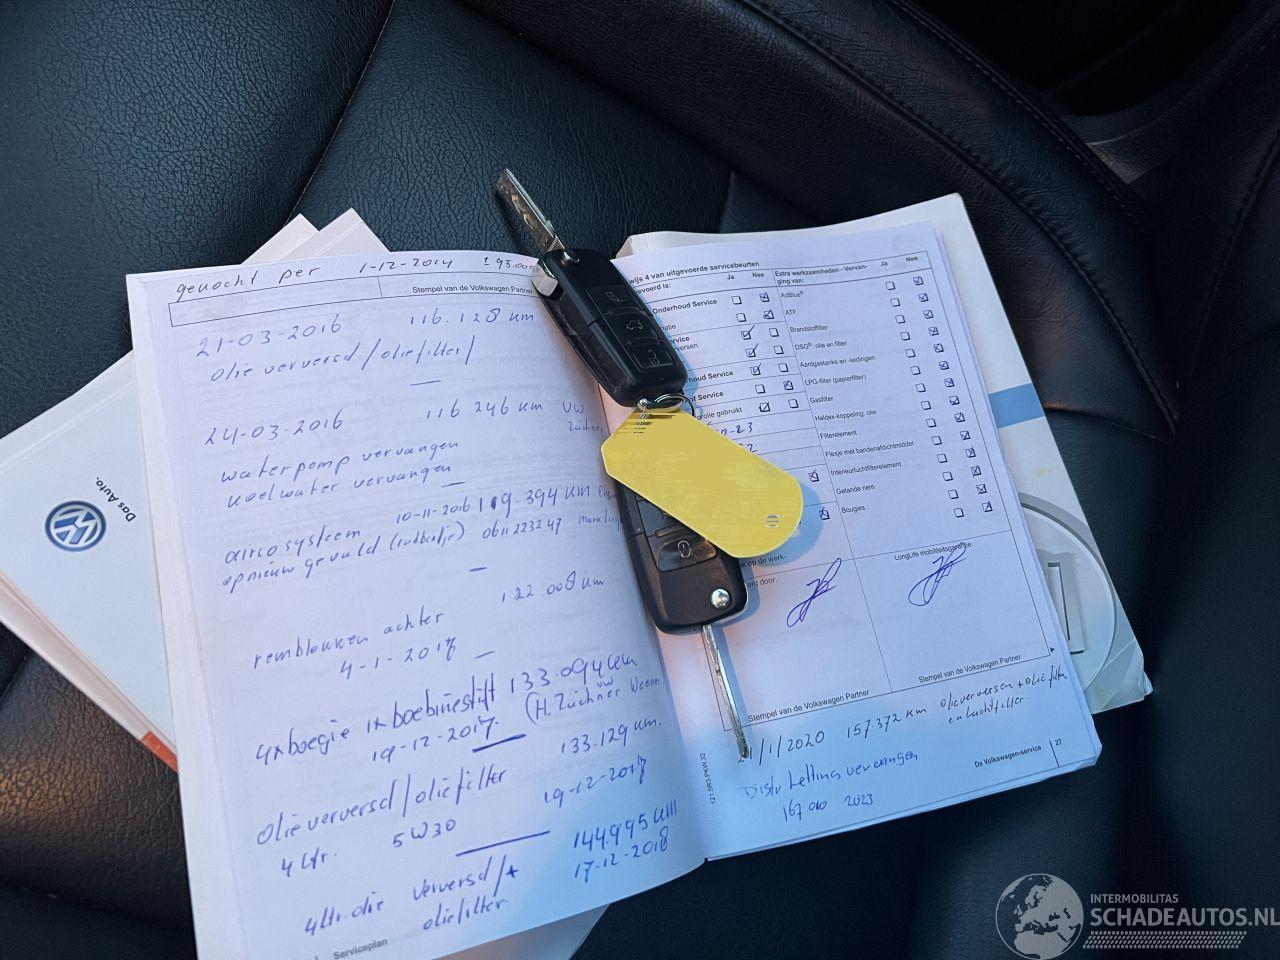 gekocht per 1-12-2014 ±93.000
Stempel van de Volkswagen Partner
21-03-2016 116.128 km
olie ververst/oliefilter/
24-03-2016 116 246 km VW
Züchner
waterpomp vervangen
koelwater vervangen
10-11-2016 119.394 km
airco systeem
opnieuw gevuld 0611223247
122.008 km
remblokken achter
4-1-2017
4x boegie 1x boebinestift 133.094 km
19-12-2017 (H. Züchner Weener
olie ververst/oliefilter 133.129 km.
4 ltr. 5W30 19-12-2017
4ltr. olie ververst/+ 144.995 km
oliefilter 17-12-2018
Serviceplan
Das Auto.
wijs 4 van uitgevoerde servicebeurten
gevoerd is: Ja Nee
Onderhoud Service
houd Service
of Service
grolie gebruikt
k op de werk-
erd door:
Stempel van de Volkswagen Partner
Extra werkzaamheden - Vervan-
ging van: Ja Nee
AdBlue®
ATF
Brandstoffilter
DSG®: olie en filter
Aardgastanks en -leidingen
LPG-filter (papierfilter)
Gasfilter
Haldex-koppeling: olie
Filterelement
Flesje met bandenafdichtmiddel
Interieurluchtfilterelement
Getande riem
Bougies
LongLife mobiliteitsgarantie:
Stempel van de Volkswagen Partner
1/1/2020 157.372 km olie verversen + oliefilter
en luchtfilter.
Distr ketting vervangen
167.000 2023
De Volkswagen-service 27
INTERMOBILITAS
SCHADEAUTOS.NL